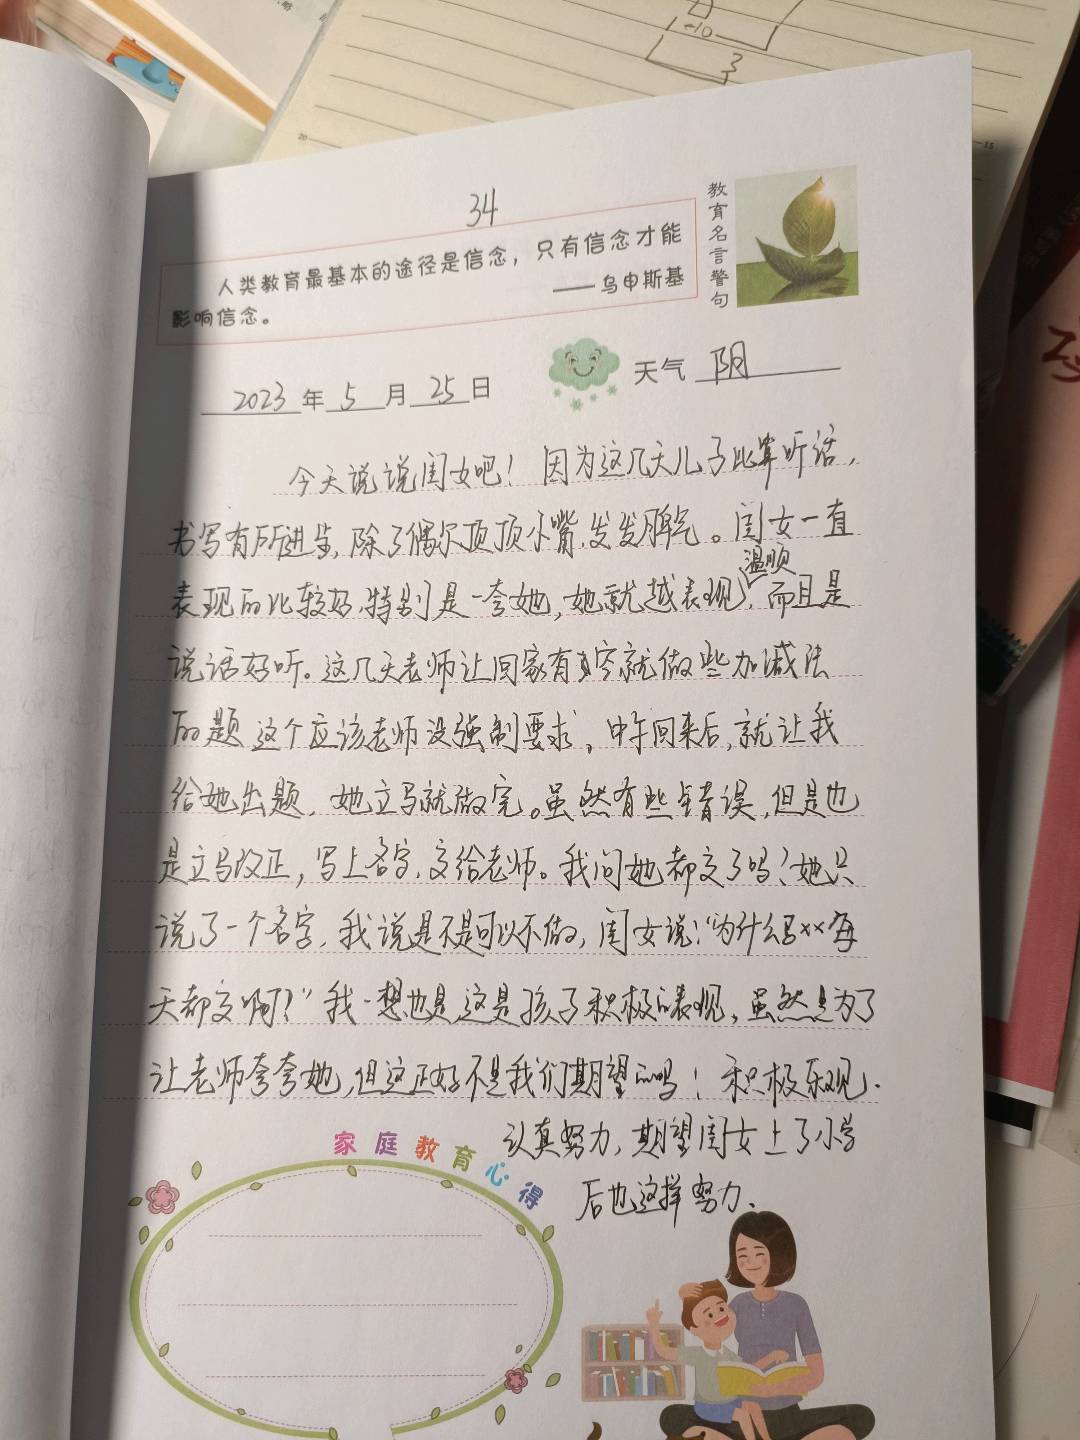 34
教育名言警句
人类教育最基本的途径是信念，只有信念才能
影响信念。
——乌申斯基
2023年5月25日
天气 阴
今天说说闺女吧！因为这几天儿子比算听话，
书写有所进步，除了偶尔顶顶小嘴，发发脾气。闺女一直
表现的比较好，特别是一夸她，她就越表现温顺，而且是
说话好听。这几天老师让回家有空就做些加减法
的题 这个应该老师没强制要求。中午回来后，就让我
给她出题，她立马就做完。虽然有些错误，但是也
是立马改正，写上名字，交给老师。我问她都交了吗？她只
说了一个名字，我说是不是可以不做，闺女说：“为什么××每
天都交啊？”我一想也是，这是孩子积极的表现，虽然是为了
让老师夸夸她，但这正好不是我们期望的吗！积极乐观、
认真努力，期望闺女上了小学
后也这样努力、
家庭教育心得